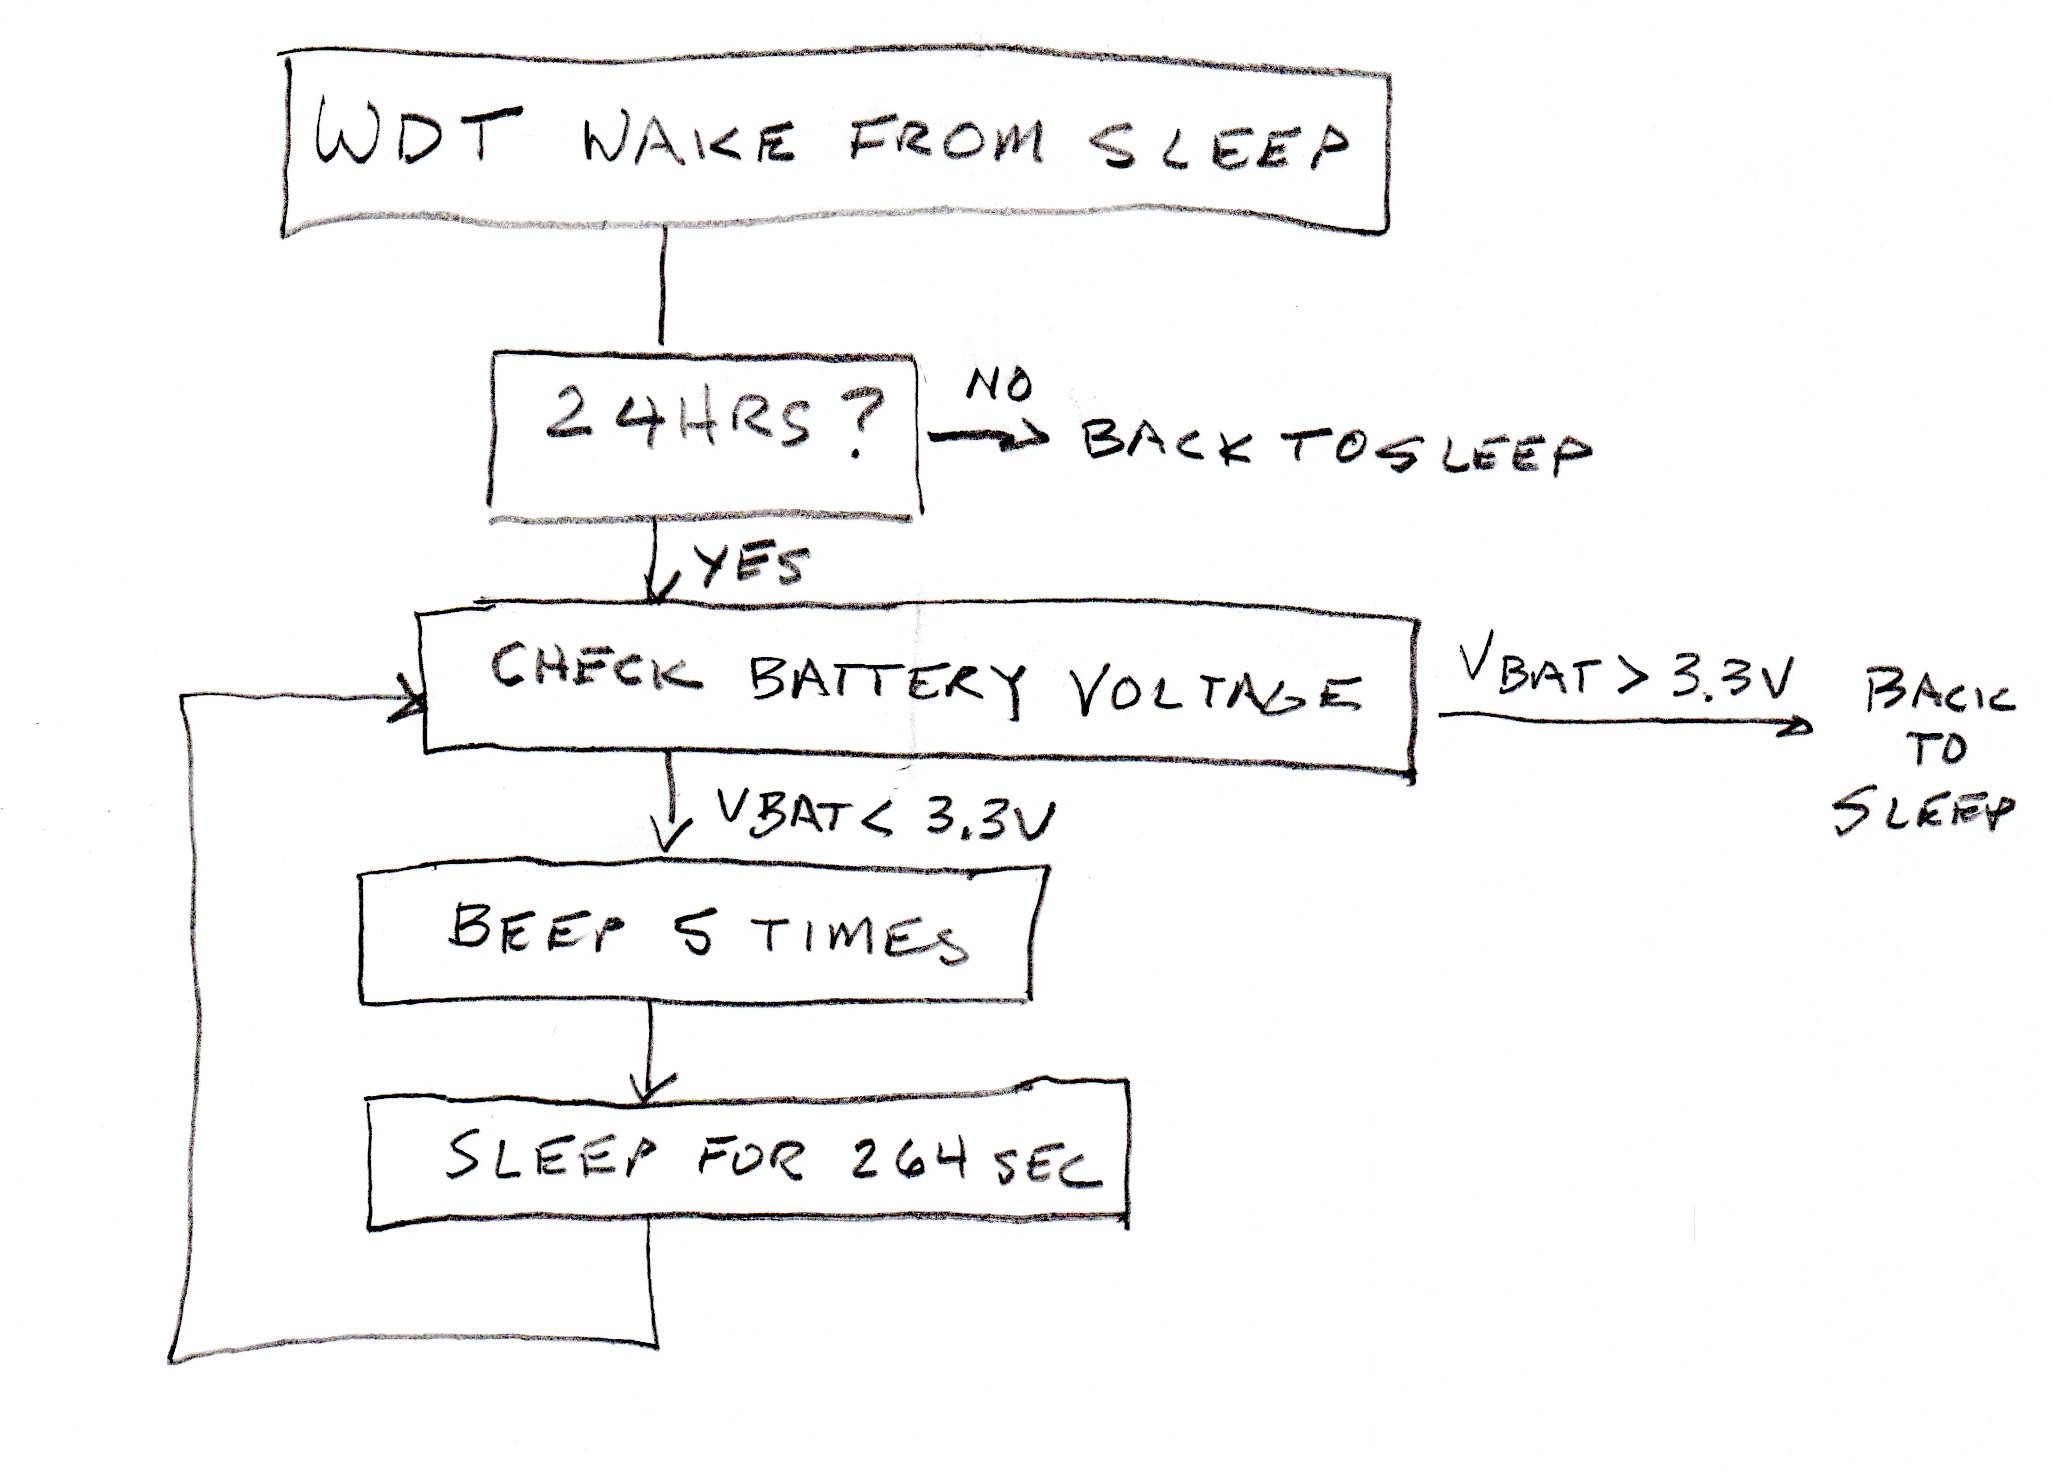 WDT WAKE FROM SLEEP
24HRS?
NO
BACK TO SLEEP
YES
CHECK BATTERY VOLTAGE
VBAT > 3.3V
BACK
TO
SLEEP
VBAT < 3.3V
BEEP 5 TIMES
SLEEP FOR 264 SEC